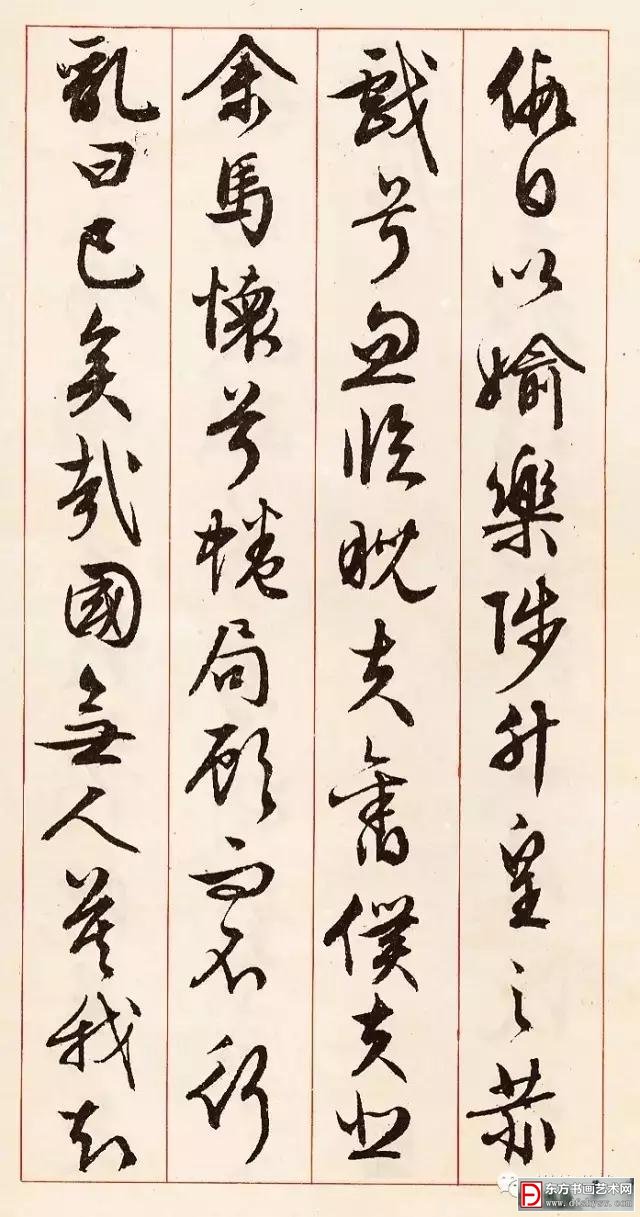 假日以媮樂陟升皇之赫
戲兮忽臨睨夫舊僕夫悲
余馬懷兮蜷局顧而不行
亂曰已矣哉國無人莫我知
东方书画艺术网
www.dfshysw.com